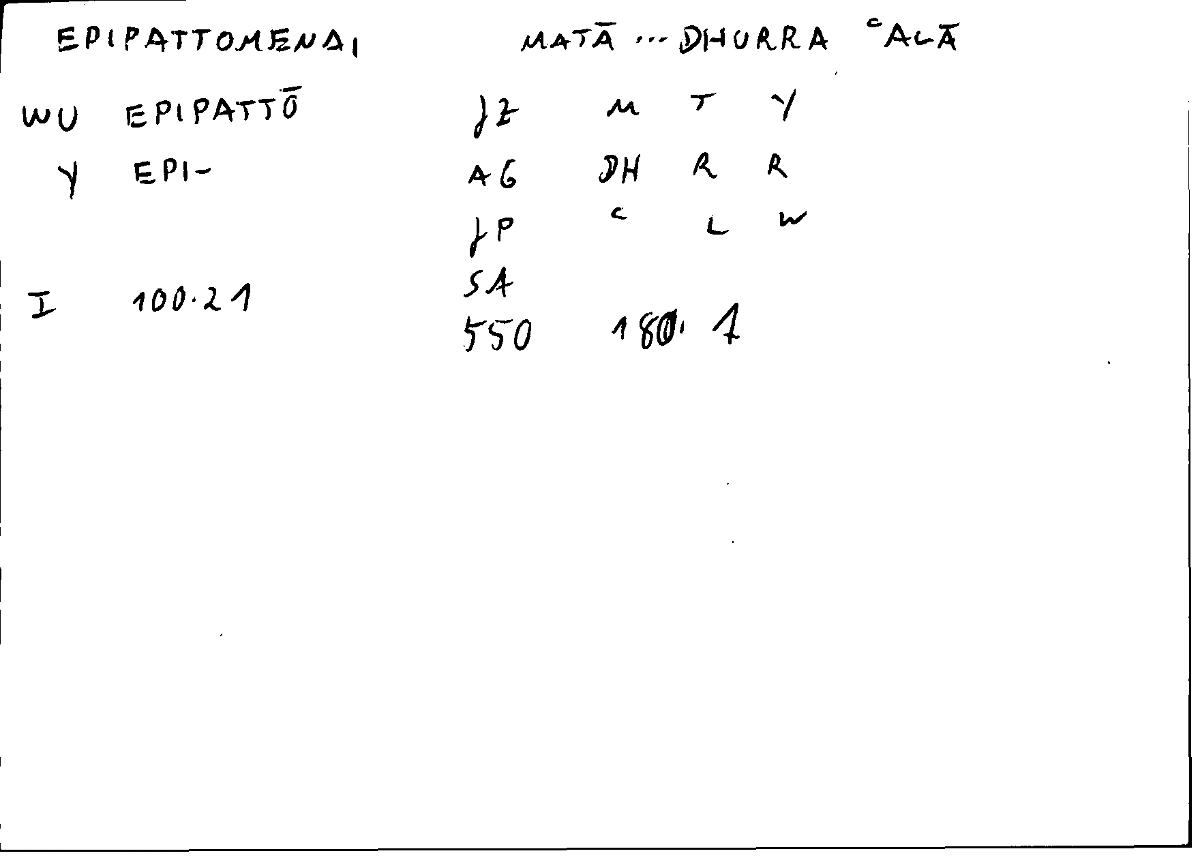 EPIPATTOMENAI MATĀ ... DHURRA ᶜALĀ
WU EPIPATTŌ JZ M T Y
Y EPI- AG DH R R
JP ᶜ L W
SA
I 100.21
550 180. 1